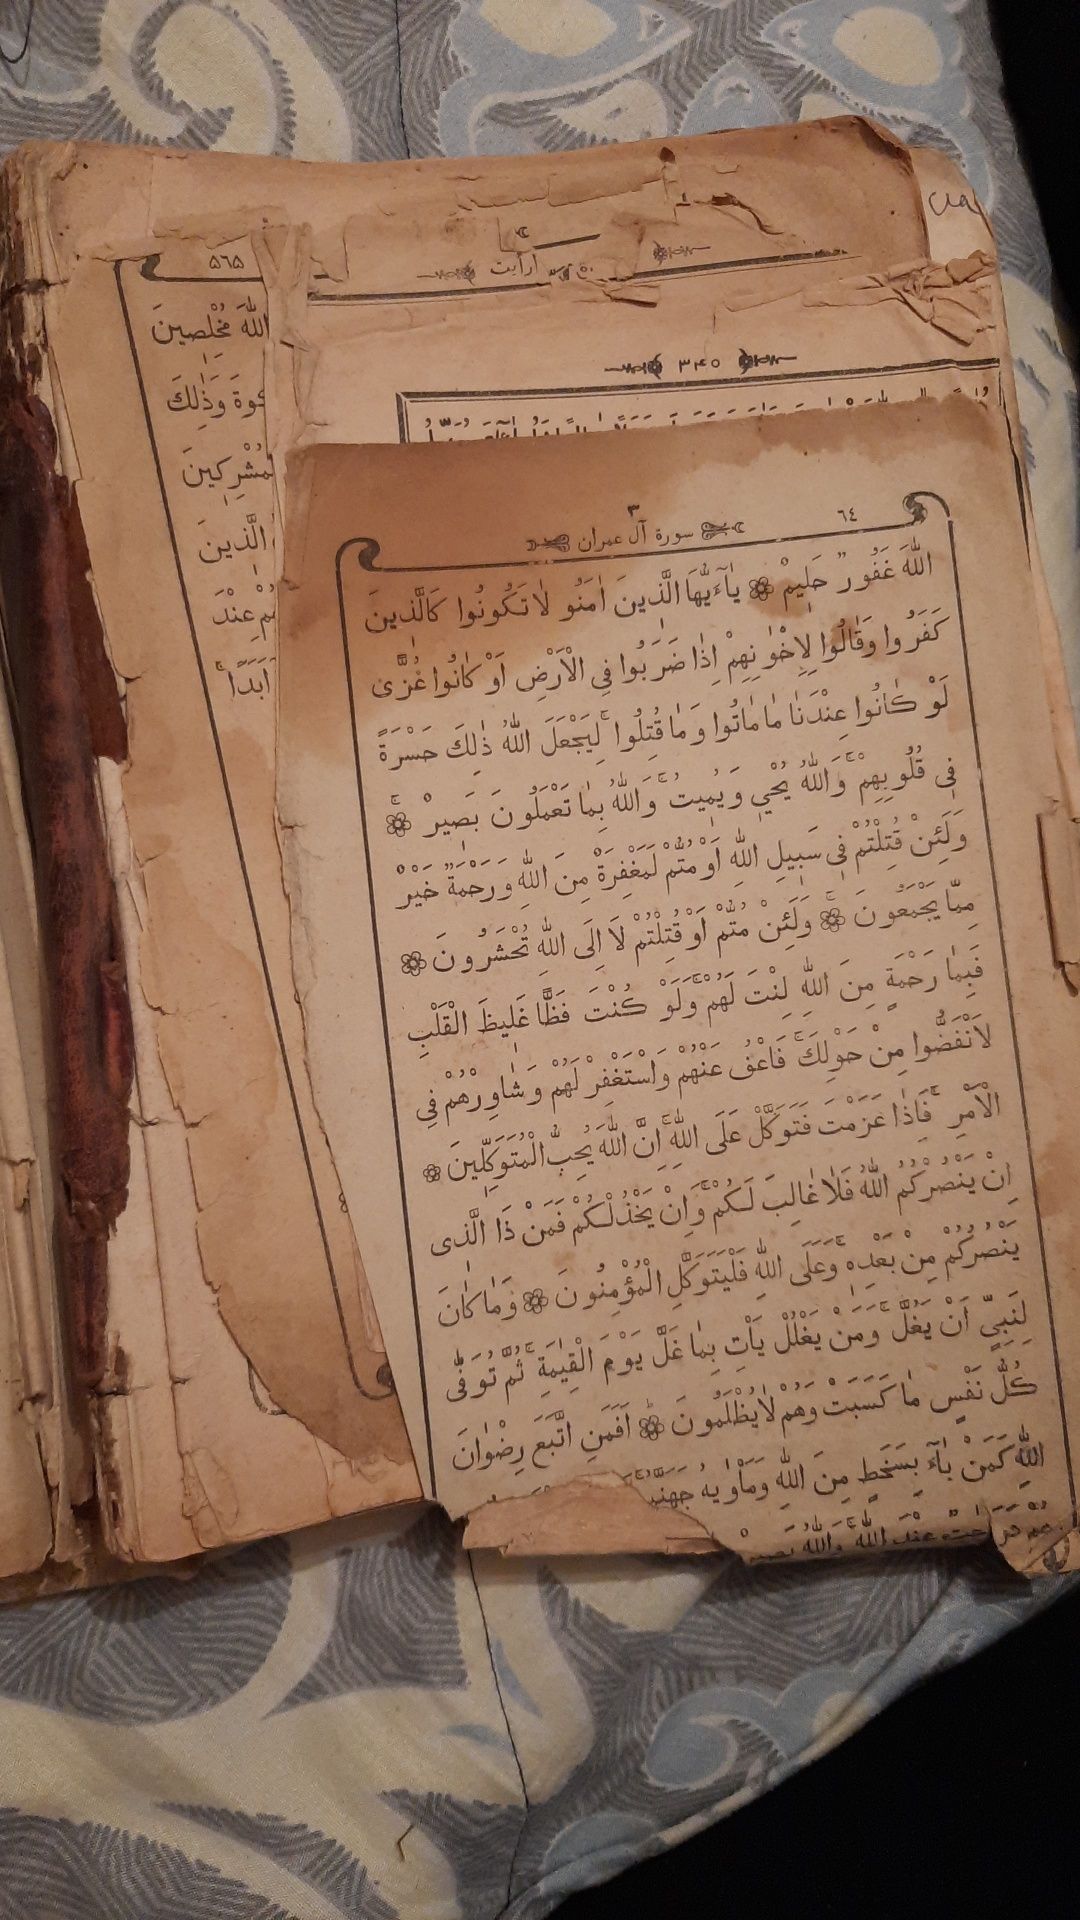 ٥٦٥
اللّٰهَ مُخْلِصِينَ
وَذٰلِكَ
الَّذِينَ
عِنْدَ
اَبَدًا ۚ
٣٤٥
٦٤
٣
سورة آل عمران
اللّٰهَ غَفُورٌ حَلِيمٌ ❁ يَٓا اَيُّهَا الَّذِينَ اٰمَنُو لَا تَكُونُوا كَالَّذِينَ
كَفَرُوا وَقَالُوا لِاِخْوٰنِهِمْ اِذَا ضَرَبُوا فِي الْاَرْضِ اَوْ كَانُوا غُزًّى
لَوْ كَانُوا عِنْدَنَا مَا مَاتُوا وَمَا قُتِلُوا ۚ لِيَجْعَلَ اللّٰهُ ذٰلِكَ حَسْرَةً
فِي قُلُوبِهِمْ ۚ وَاللّٰهُ يُحْيِ وَيُمِيتُ ۚ وَاللّٰهُ بِمَا تَعْمَلُونَ بَصِيرٌ ❁
وَلَئِنْ قُتِلْتُمْ فِي سَبِيلِ اللّٰهِ اَوْ مُتُّمْ لَمَغْفِرَةٌ مِنَ اللّٰهِ وَرَحْمَةٌ خَيْرٌ
مِمَّا يَجْمَعُونَ ❁ وَلَئِنْ مُتُّمْ اَوْ قُتِلْتُمْ لَا اِلَى اللّٰهِ تُحْشَرُونَ ❁
فَبِمَا رَحْمَةٍ مِنَ اللّٰهِ لِنْتَ لَهُمْ ۚ وَلَوْ كُنْتَ فَظًّا غَلِيظَ الْقَلْبِ
لَانْفَضُّوا مِنْ حَوْلِكَ ۚ فَاعْفُ عَنْهُمْ وَاسْتَغْفِرْ لَهُمْ وَشَاوِرْهُمْ فِي
الْاَمْرِ ۚ فَاِذَا عَزَمْتَ فَتَوَكَّلْ عَلَى اللّٰهِ ۚ اِنَّ اللّٰهَ يُحِبُّ الْمُتَوَكِّلِينَ ❁
اِنْ يَنْصُرْكُمُ اللّٰهُ فَلَا غَالِبَ لَكُمْ ۚ وَاِنْ يَخْذُلْكُمْ فَمَنْ ذَا الَّذِي
يَنْصُرُكُمْ مِنْ بَعْدِهِ ۚ وَعَلَى اللّٰهِ فَلْيَتَوَكَّلِ الْمُؤْمِنُونَ ❁ وَمَا كَانَ
لِنَبِيٍّ اَنْ يَغُلَّ ۚ وَمَنْ يَغْلُلْ يَأْتِ بِمَا غَلَّ يَوْمَ الْقِيٰمَةِ ۚ ثُمَّ تُوَفّٰى
كُلُّ نَفْسٍ مَا كَسَبَتْ وَهُمْ لَا يُظْلَمُونَ ❁ اَفَمَنِ اتَّبَعَ رِضْوَانَ
اللّٰهِ كَمَنْ بَٓاءَ بِسَخَطٍ مِنَ اللّٰهِ وَمَأْوٰيهُ جَهَنَّمُ
هُمْ دَرَجَاتٌ عِنْدَ اللّٰهِ ۚ وَاللّٰهُ بَصِيرٌ